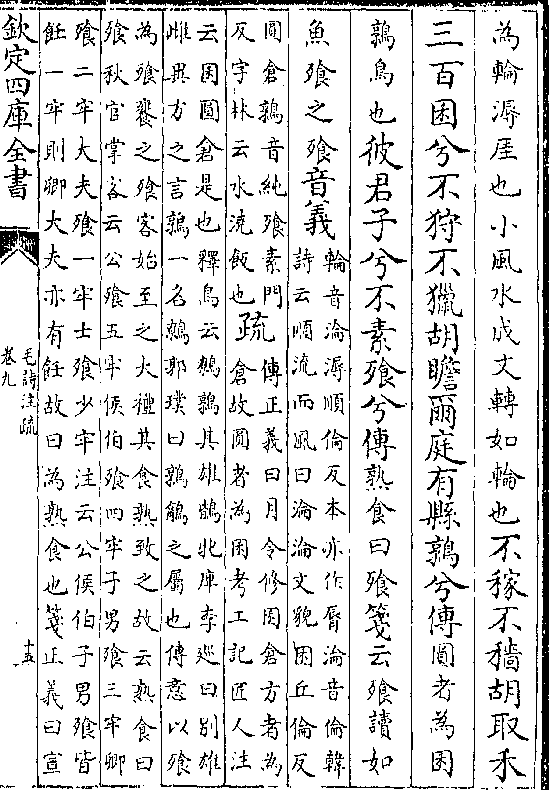 為輪漘厓也小風水成文轉如輪也不稼不穡胡取禾
三百囷兮不狩不獵胡瞻爾庭有縣鶉兮傳圓者為囷
鶉鳥也彼君子兮不素飱兮傳熟食曰飱箋云飱讀如
魚飱之飱音義
輪音淪漘順倫反本亦作脣淪音倫韓
詩云順流而風曰淪淪文貌囷丘倫反
圓倉鶉音純飱素門
反字林云水澆飯也
疏
傳正義曰月令修囷倉方者為
倉故圓者為囷考工記匠人注
云囷圓倉是也釋鳥云鷯鶉其雄鶛牝庳李巡曰別雄
雌異方之言鶉一名鷯郭璞曰鶉之屬也傳意以飱
為飱饔之飱客始至之大禮其食熟致之故云熟食曰
飱秋官掌客云公飱五牢侯伯飱四牢子男飱三牢卿
飱二牢大夫飱一牢士飱少牢注云公侯伯子男飱皆
飪一牢則卿大夫亦有飪故曰為熟食也箋正義曰宣
欽定四庫全書
毛詩注疏
卷九
十五